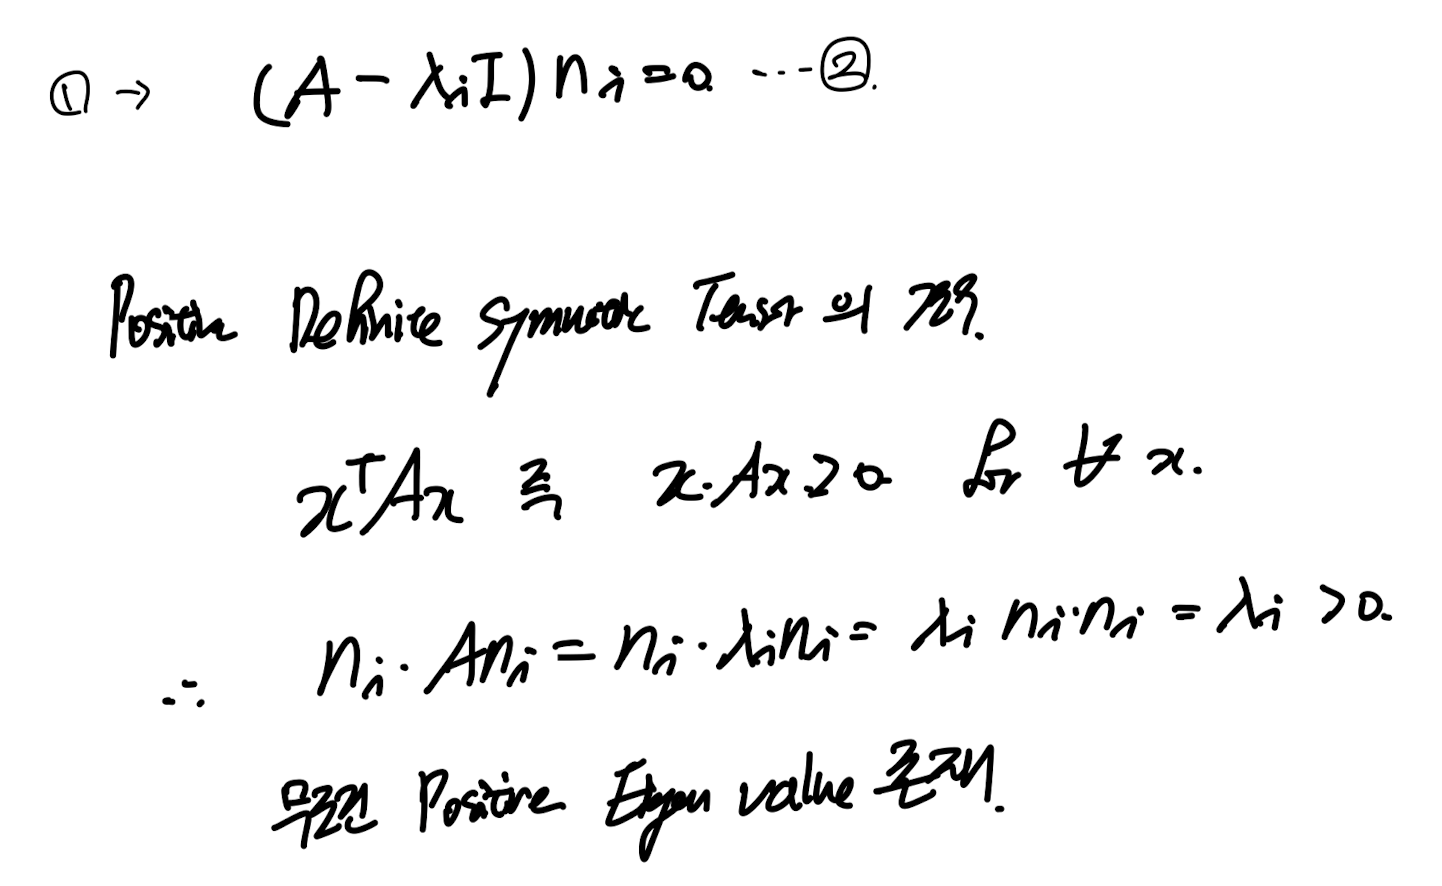 ① → (A - λiI) ni = 0. ---②.
Positive Definite Symmetric Tensor 의 경우.
xᵀAx 즉 x·Ax > 0 for ∀ x.
∴ ni · Ani = ni · λini = λi ni·ni = λi > 0.
무조건 Positive Eigen value 존재.